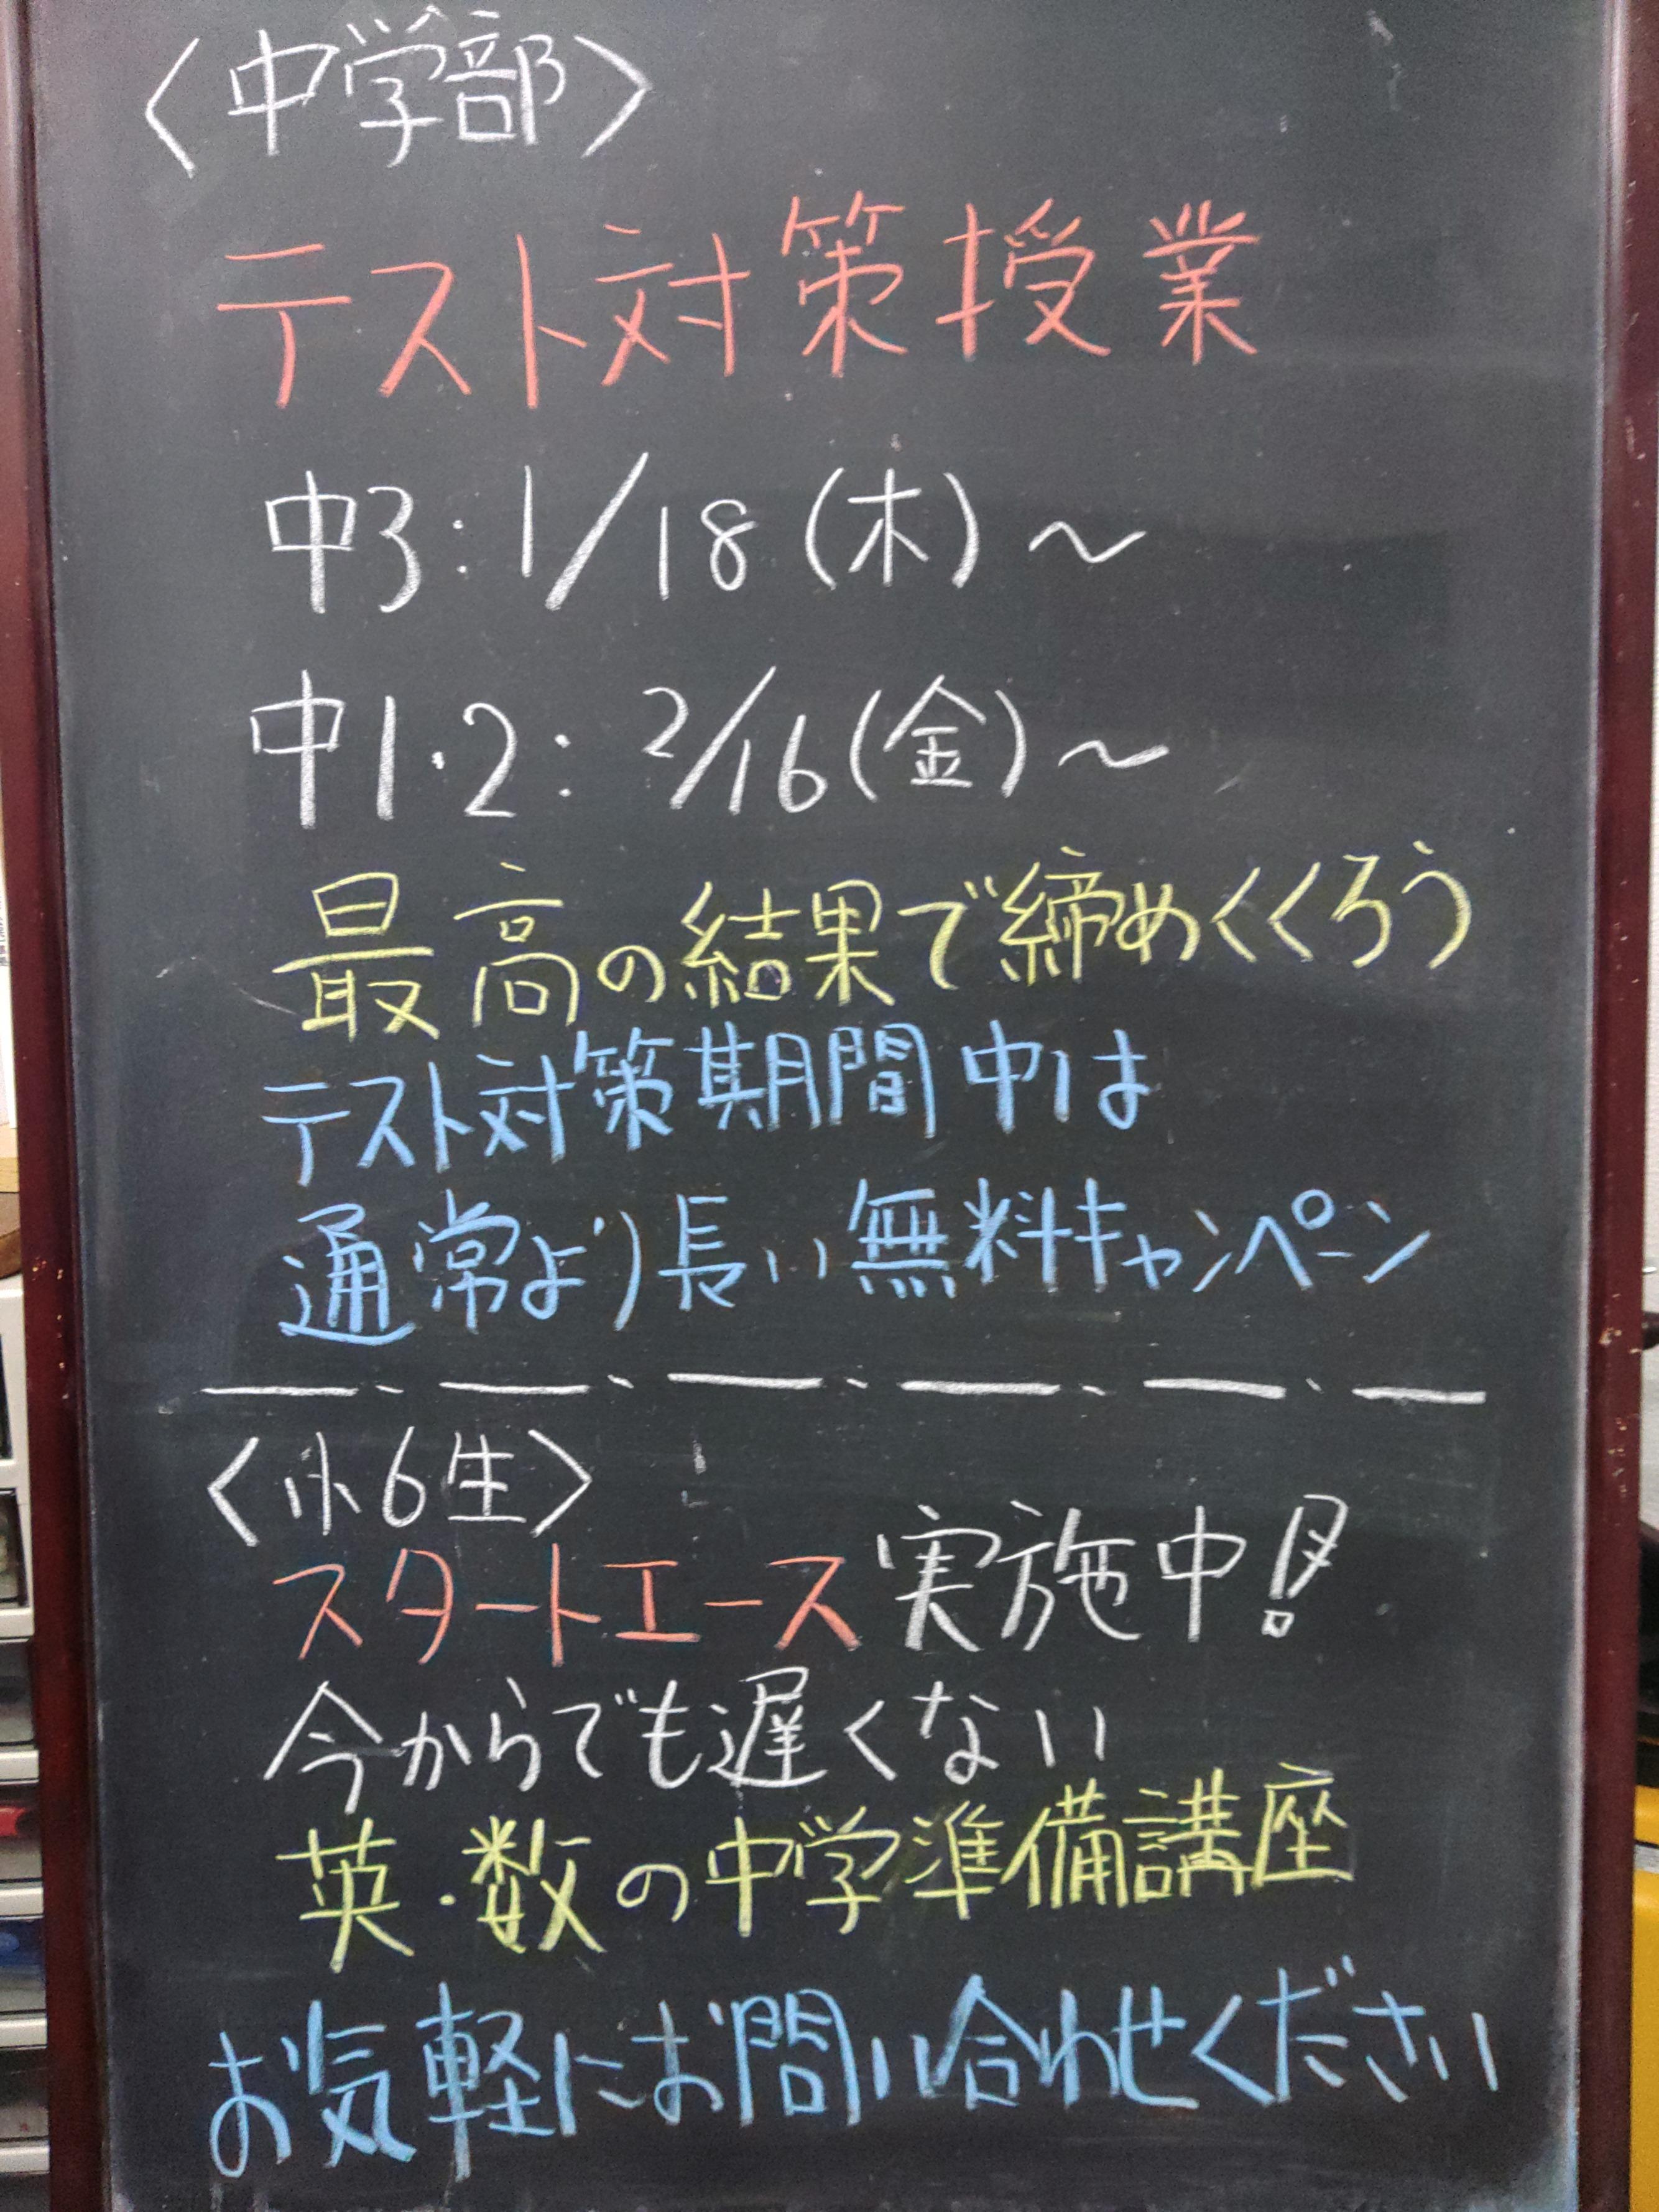 〈中学部〉
テスト対策授業
中3:1/18(木)～
中1・2:2/16(金)～
最高の結果で締めくくろう
テスト対策期間中は
通常より長い無料キャンペーン
〈小6生〉
スタートエース実施中!
今からでも遅くない
英・数の中学準備講座
お気軽にお問い合わせください